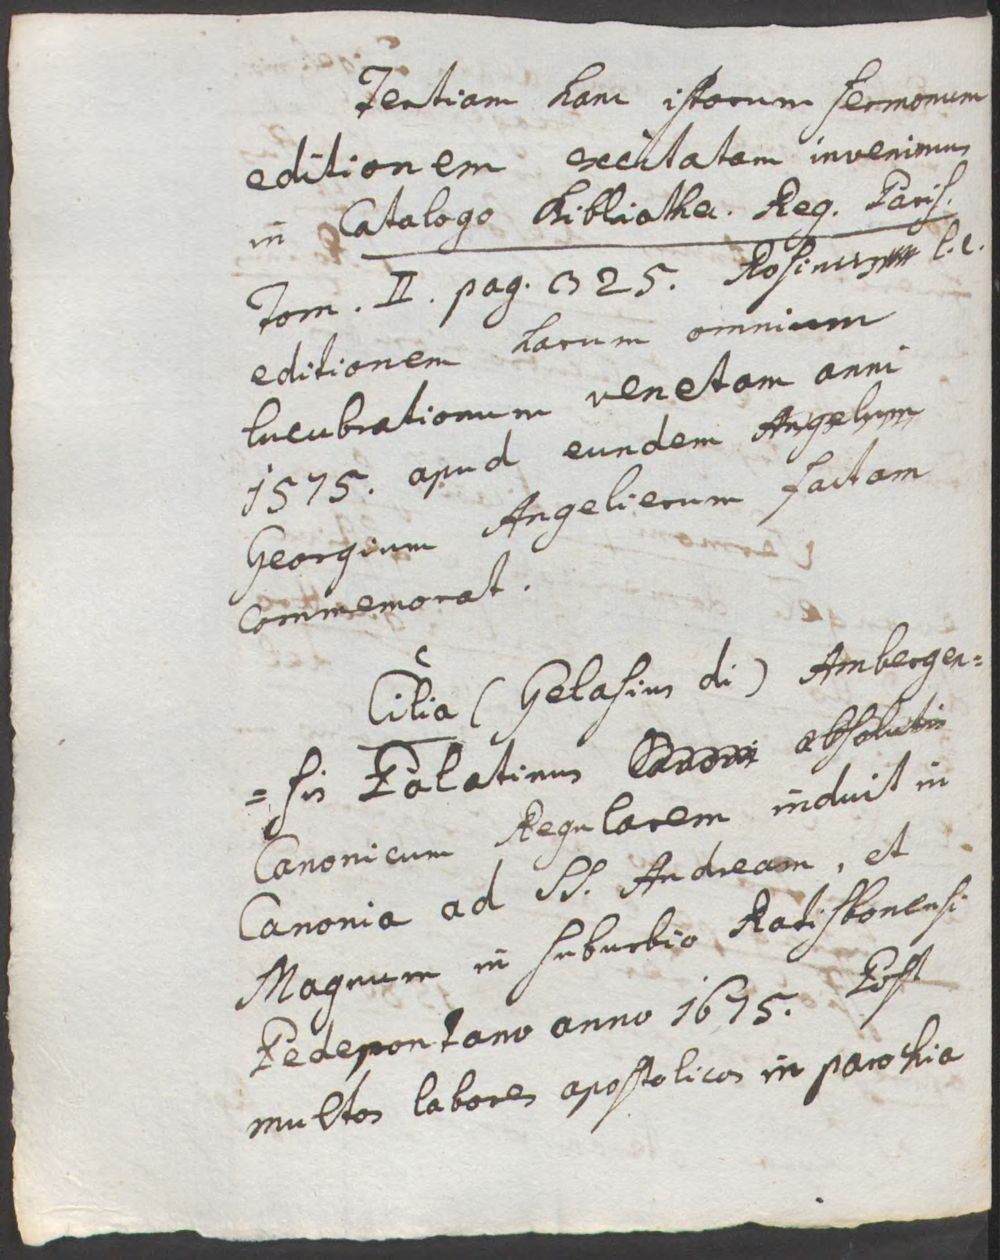 Tertiam hanc istorum sermonum
editionem recitatam invenimus
in Catalogo Bibliothec. Reg. Paris.
Tom. II. pag. 325. Rosinus l. c.
editionem harum omnium
lucubrationum venetam anni
1575. apud eundem Angelum
Georgium Angelierum factam
commemorat.
Cilia (Gelasius di) Ambergen=
=sis Palatinus absolutis
Canonicum Regularem induit in
Canonia ad SS. Andream, et
Magnum in suburbio Ratisbonensi
Pedepontano anno 1675. Post
multos labores apostolicos in parochia